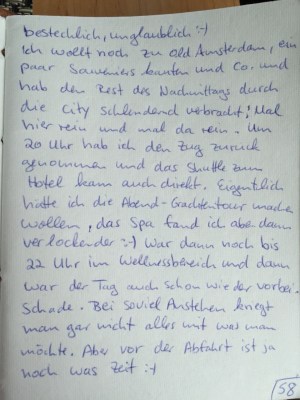 bestechlich, unglaublich :-)
Ich wollt noch zu old Amsterdam, ein
paar Souveniers kaufen und Co. und
hab den Rest des Nachmittags durch
die City schlendend verbracht; Mal
hier rein und mal da rein. Um
20 Uhr hab ich den Zug zurück
genommen und das Shuttle zum
Hotel kam auch direkt. Eigentlich
hätte ich die Abend-Grachtentour machen
wollen, das Spa fand ich aber dann
verlockender :-) War dann noch bis
22 Uhr im Wellnessbereich und dann
war der Tag auch schon wieder vorbei.
Schade. Bei soviel Anstehen kriegt
man gar nicht alles mit was man
möchte. Aber vor der Abfahrt ist ja
noch was Zeit :-)
58